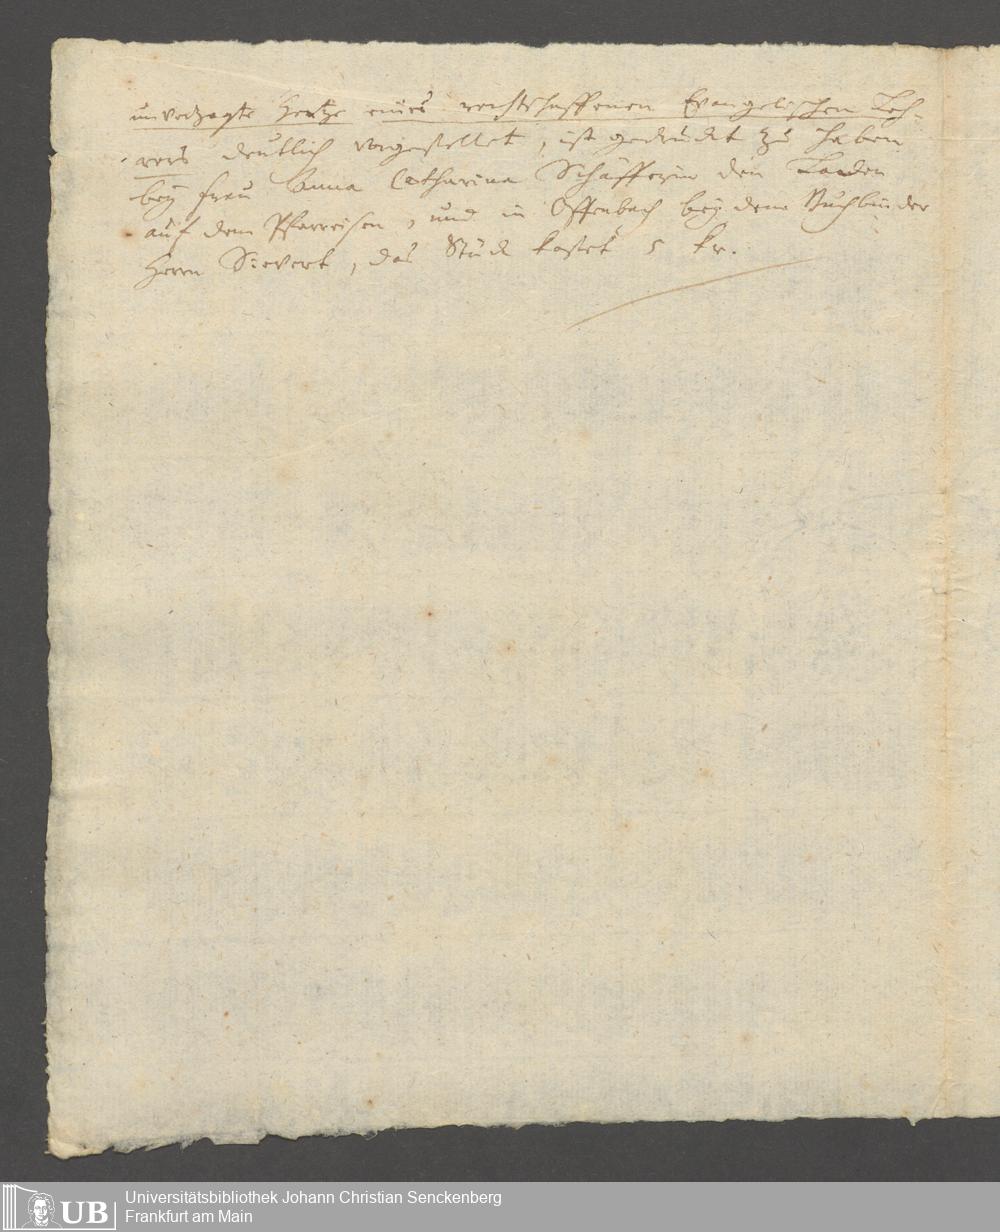 unverzagte Hertze eines rechtschaffenen Evangelischen Leh-
rers deutlich vorgestellet, ist gedruckt zu haben
bey Frau Anna Catharina Schäfferin den Laden
auf dem Pfarreisen, und in Offenbach bey dem Buchbinder
Herrn Sievert, das Stück kostet 5 kr.
UB
Universitätsbibliothek Johann Christian Senckenberg
Frankfurt am Main